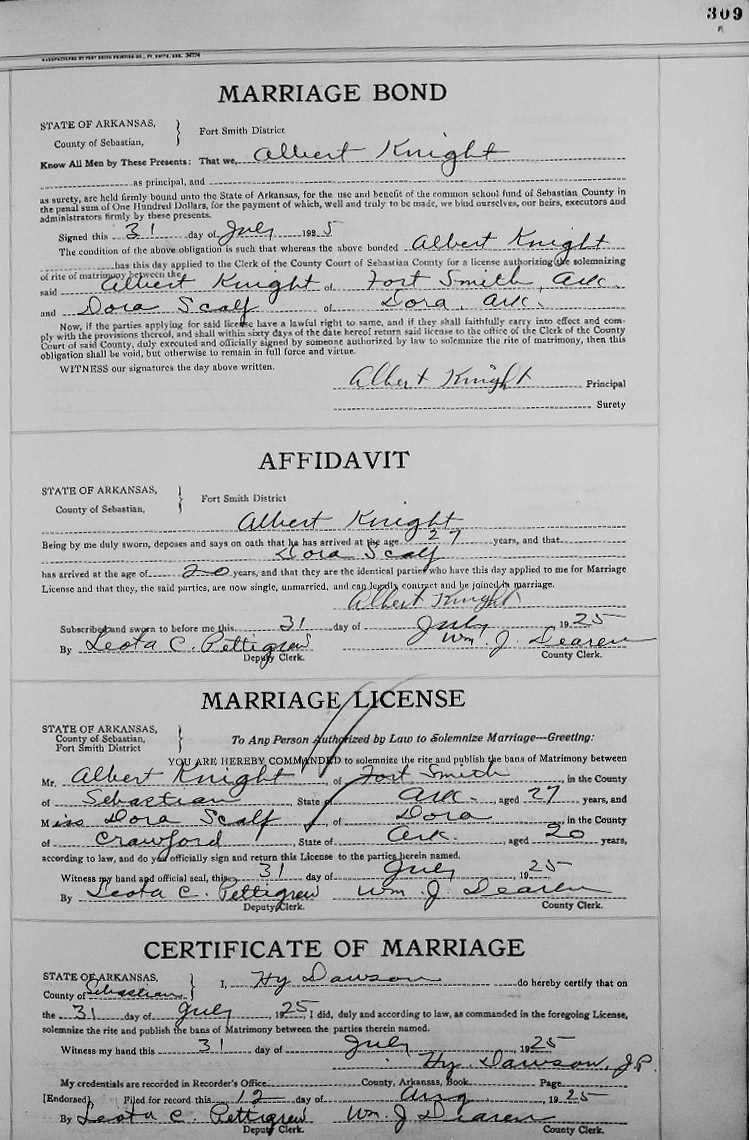 309
MANUFACTURED BY FORT SMITH PRINTING CO., FT. SMITH, ARK. 34774
MARRIAGE BOND
STATE OF ARKANSAS,
County of Sebastian,
Fort Smith District
Know All Men by These Presents: That we, Albert Knight
as principal, and
as surety, are held firmly bound unto the State of Arkansas, for the use and benefit of the common school fund of Sebastian County in
the penal sum of One Hundred Dollars, for the payment of which, well and truly to be made, we bind ourselves, our heirs, executors and
administrators firmly by these presents.
Signed this 31 day of July 1925
The condition of the above obligation is such that whereas the above bonded Albert Knight
has this day applied to the Clerk of the County Court of Sebastian County for a license authorizing the solemnizing
of rite of matrimony between the
said Albert Knight of Fort Smith, Ark.
and Dora Scalf of Dora, Ark.
Now, if the parties applying for said license have a lawful right to same, and if they shall faithfully carry into effect and com-
ply with the provisions thereof, and shall within sixty days of the date hereof return said license to the office of the Clerk of the County
Court of said County, duly executed and officially signed by someone authorized by law to solemnize the rite of matrimony, then this
obligation shall be void, but otherwise to remain in full force and virtue.
WITNESS our signatures the day above written.
Albert Knight Principal
Surety
AFFIDAVIT
STATE OF ARKANSAS,
County of Sebastian,
Fort Smith District
Albert Knight
Being by me duly sworn, deposes and says on oath that he has arrived at the age 27 years, and that
Dora Scalf
has arrived at the age of 20 years, and that they are the identical parties who have this day applied to me for Marriage
License and that they, the said parties, are now single, unmarried, and can legally contract and be joined in marriage.
Albert Knight
Subscribed and sworn to before me this 31 day of July 1925
By Leota C. Pettigrew Wm. J. Dearen
Deputy Clerk. County Clerk.
MARRIAGE LICENSE
STATE OF ARKANSAS,
County of Sebastian,
Fort Smith District
To Any Person Authorized by Law to Solemnize Marriage—Greeting:
YOU ARE HEREBY COMMANDED to solemnize the rite and publish the bans of Matrimony between
Mr. Albert Knight, of Fort Smith, in the County
of Sebastian, State of Ark. aged 27 years, and
Miss Dora Scalf, of Dora, in the County
of Crawford, State of Ark. aged 20 years,
according to law, and do you officially sign and return this License to the parties herein named.
Witness my hand and official seal, this 31 day of July, 1925
By Leota C. Pettigrew Wm. J. Dearen
Deputy Clerk. County Clerk.
CERTIFICATE OF MARRIAGE
STATE OF ARKANSAS,
County of Sebastian
I, Hy Dawson do hereby certify that on
the 31 day of July, 1925, I did, duly and according to law, as commanded in the foregoing License,
solemnize the rite and publish the bans of Matrimony between the parties therein named.
Witness my hand this 31 day of July, 1925
Hy. Dawson, J.P.
My credentials are recorded in Recorder's Office County, Arkansas, Book Page
[Endorsed] Filed for record this 12 day of Aug, 1925
By Leota C. Pettigrew Wm. J Dearen
Deputy Clerk. County Clerk.